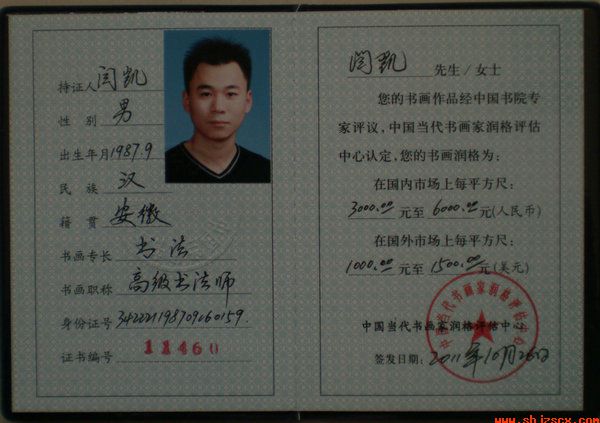 持证人 闫凯
性 别 男
出生年月 1987.9
民 族 汉
籍 贯 安徽
书画专长 书法
书画职称 高级书法师
身份证号 342221198709060159.
证书编号 11460
闫凯 先生/女士
您的书画作品经中国书院专
家评议,中国当代书画家润格评估
中心认定,您的书画润格为:
在国内市场上每平方尺:
3000.00 元至 6000.00 元(人民币)
在国外市场上每平方尺:
1000.00 元至 1500.00 元(美元)
中国当代书画家润格评估中心
签发日期: 2011年10月26日
中国当代书画家润格评估中心
www.shjzscx.com